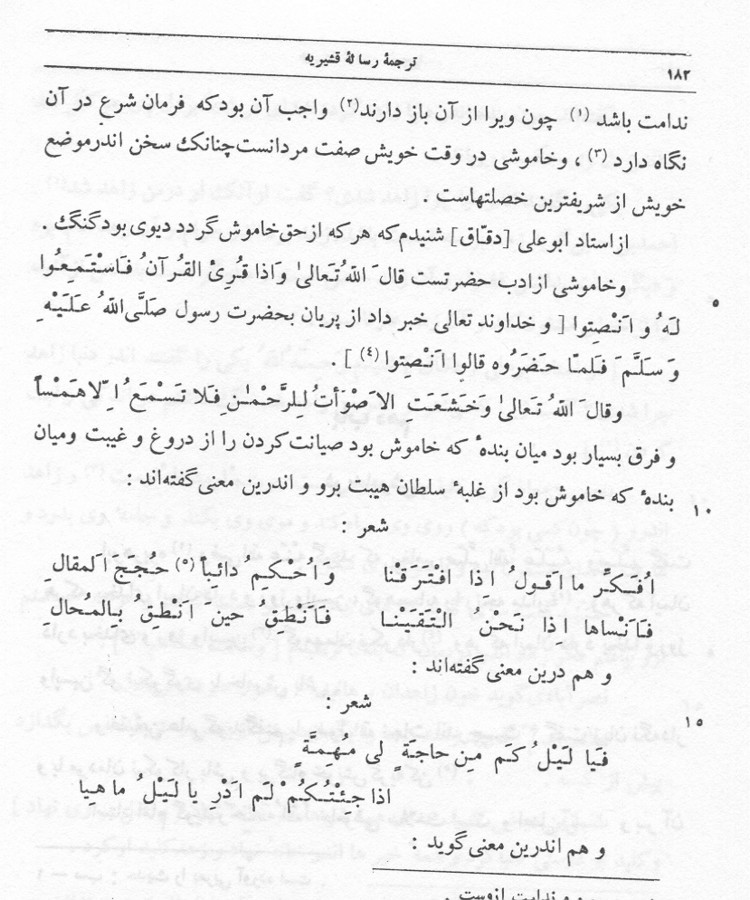 ترجمهٔ رسالهٔ قشیریه
۱۸۲
ندامت باشد (۱) چون ویرا از آن باز دارند (۲) واجب آن بود که فرمان شرع در آن
نگاه دارد (۳) ، و خاموشی در وقت خویش صفت مردانست چنانک سخن اندر موضع
خویش از شریفترین خصلتهاست .
از استاد ابوعلی [دقّاق] شنیدم که هر که از حق خاموش گردد دیوی بود گنگ .
۵ و خاموشی از ادب حضرتست قالَ اللهُ تَعالیٰ وَاذا قُرِئَ القُرآنُ فَاسْتَمِعُوا
لَهُ و اَنْصِتوا [ و خداوند تعالی خبر داد از پریان بحضرت رسول صَلَّی اللهُ عَلَیْهِ
وَ سَلَّمَ فَلمّا حَضَرُوه قالوا اَنْصِتوا (٤) ] .
وقالَ اللهُ تَعالیٰ وَخَشَعَت الاَصْوٰاتُ لِلرَّحْمٰنِ فَلا تَسْمَعُ اِلّا هَمْساً
و فرق بسیار بود میان بندهٔ که خاموش بود صیانت کردن را از دروغ و غیبت ومیان
۱۰ بندهٔ که خاموش بود از غلبهٔ سلطان هیبت برو و اندرین معنی گفته‌اند :
شعر :
اُفَکِّر ما اَقولُ اذا افْتَرَقْنا وَاَحْکِمُ دائباً (٥) حُجَجَ المقالِ
فَاَنْساها اذا نَحْنُ التَقَیْنا فَاَنْطِقُ حینَ اَنْطقُ بِالمُحالِ
و هم درین معنی گفته‌اند :
۱٥ شعر :
فَیا لَیْلُ کَم مِن حاجَةٍ لی مُهِمَّةٍ
اذا جِئْتُکُم لَم اَدْرِ یا لَیلُ ما هِیا
و هم اندرین معنی گوید :